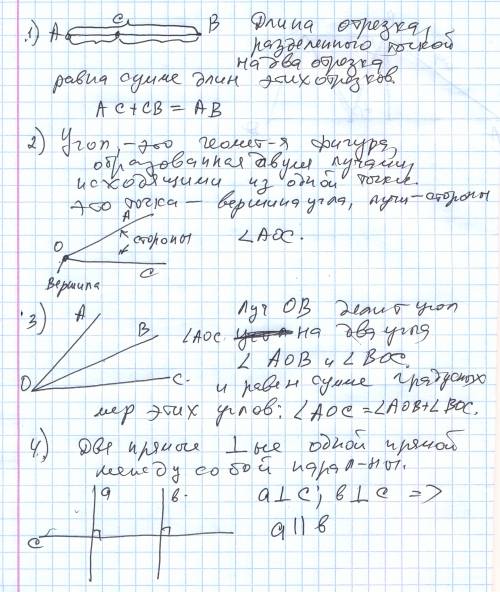 1) A C B Длина отрезка,
разделенного точкой
на два отрезка
равна сумме длин этих отрезков.
AC+CB=AB
2) Угол, - это геомет-я фигура,
образованная двумя лучами,
исходящими из одной точки.
это точка - вершина угла, лучи-стороны
A
O стороны ∠AOC.
C
Вершина
3) A Луч OB делит угол
B ∠AOC на два угла
∠AOB и ∠BOC.
O C.
и равен сумме градусных
мер этих углов: ∠AOC=∠AOB+∠BOC.
4.) Две прямые ⊥ые одной прямой
между собой парал-ны.
a в. a⊥c; в⊥c =>
c a||в